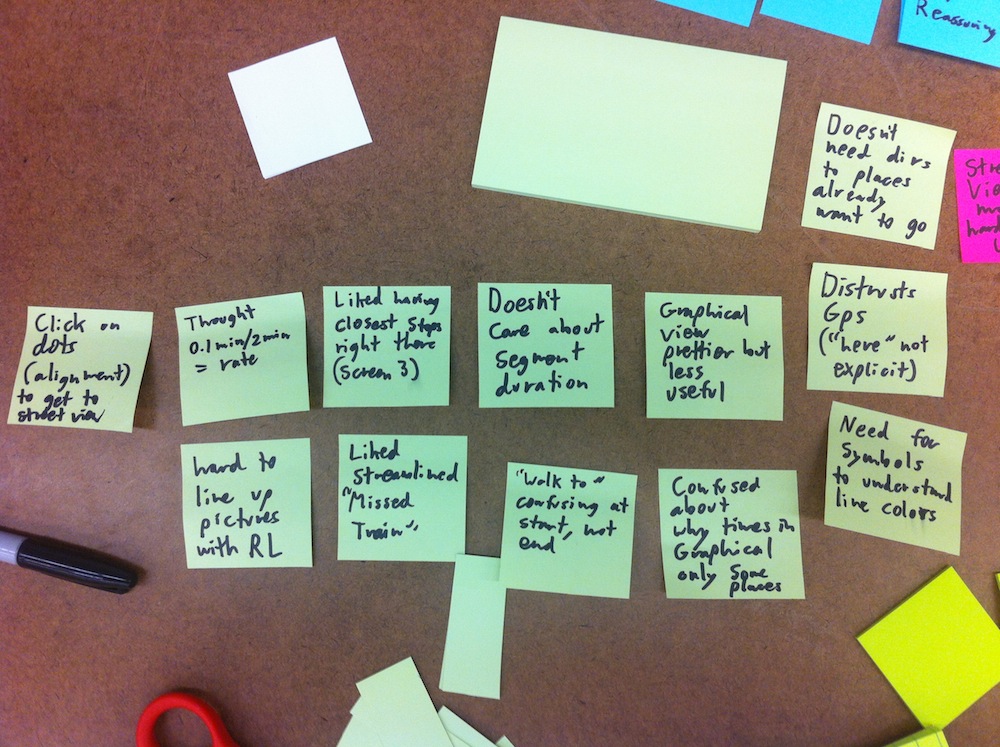 Reassuring
Doesn't
need dirs
to places
already
want to go
Stre
Vie
mo
hard
Click on
dots
(alignment)
to get to
street view
Thought
0.1 min/2 min
= rate
Liked having
closest stops
right there
(Screen 3)
Doesn't
care about
segment
duration
Graphical
view
prettier but
less
useful
Distrusts
Gps
("here" not
explicit)
hard to
line up
pictures
with RL
Liked
streamlined
"Missed
Train"
"Walk to"
confusing at
start, not
end
Confused
about
why times in
Graphical
only some
places
Need for
Symbols
to understand
line colors